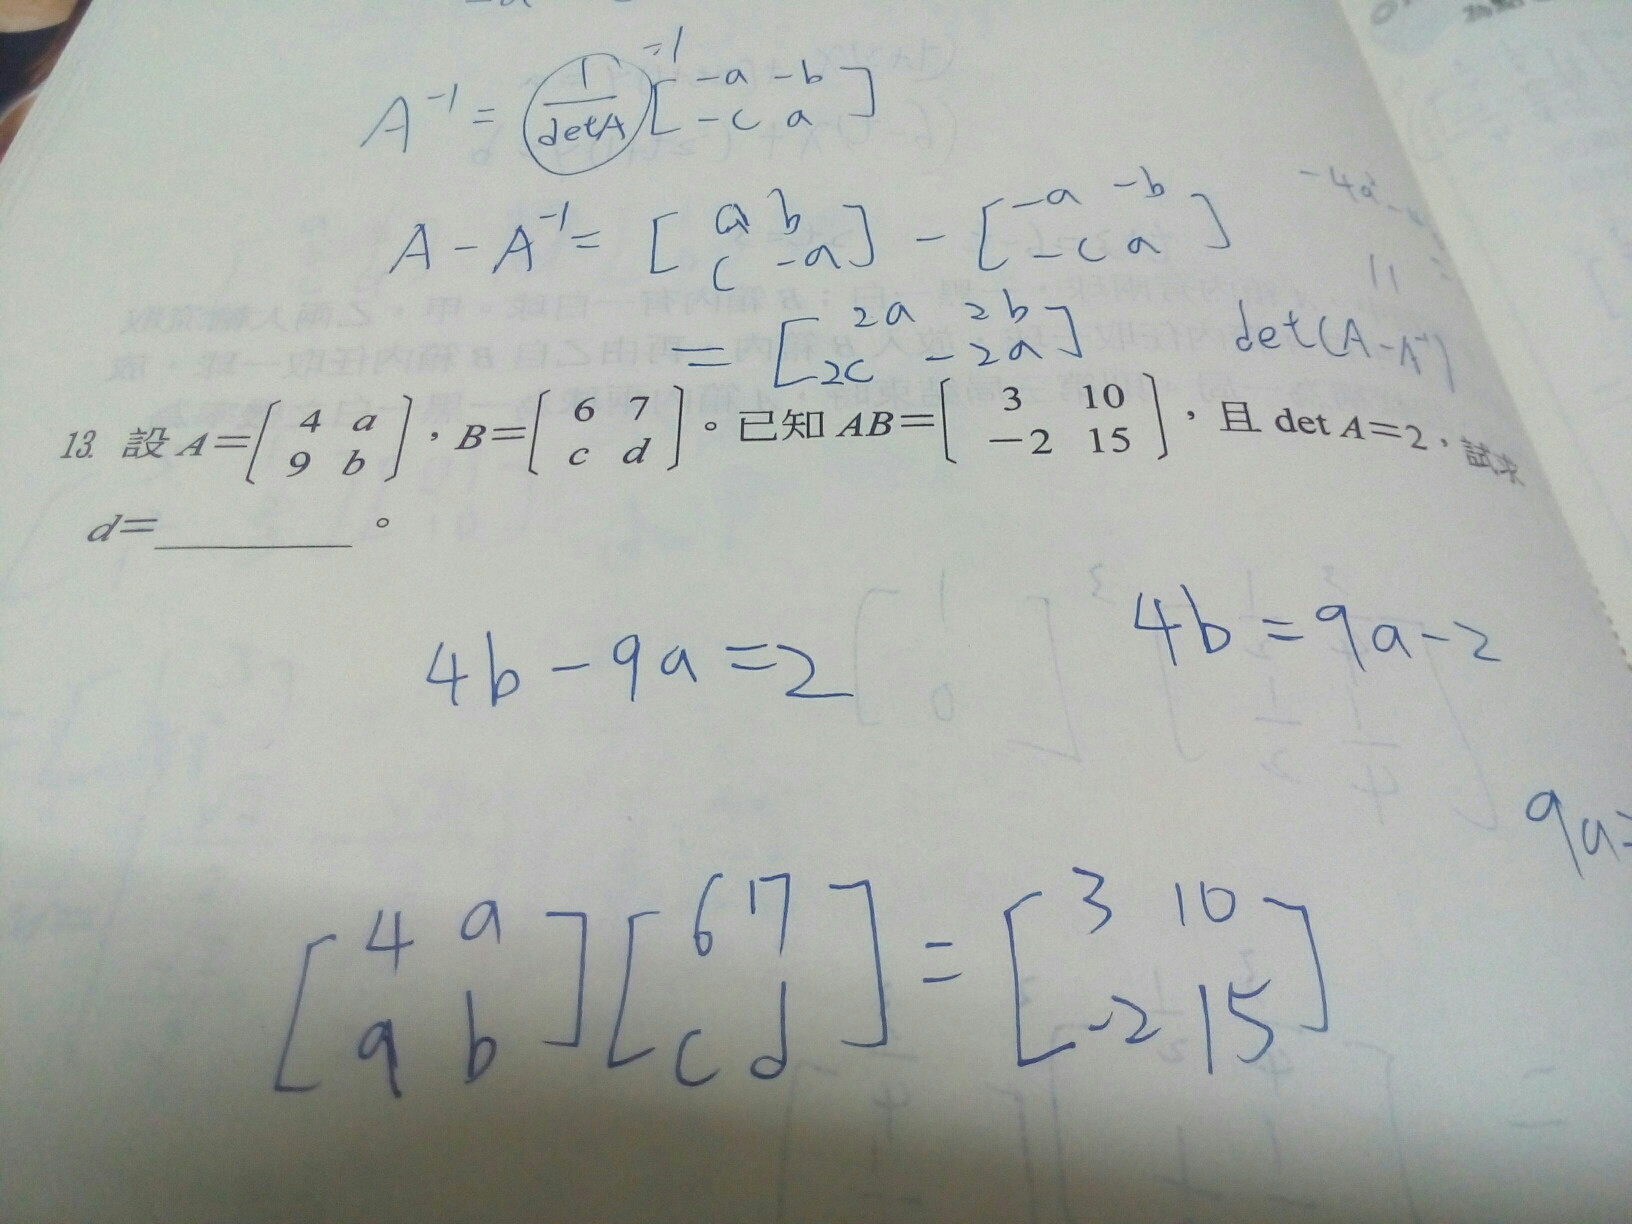 A⁻¹ = 1/detA [ -a -b
-c a ]
=-1
A - A⁻¹ = [ a b
c -a ] - [ -a -b
-c a ]
= [ 2a 2b
2c -2a ]
-4a²
11
det(A-A⁻¹)
13. 設 A=[ 4 a
9 b ],B=[ 6 7
c d ]。已知 AB=[ 3 10
-2 15 ],且 det A=2,試求
d=________。
4b - 9a = 2
4b = 9a - 2
9a=
[ 4 a
9 b ] [ 6 7
c d ] = [ 3 10
-2 15 ]